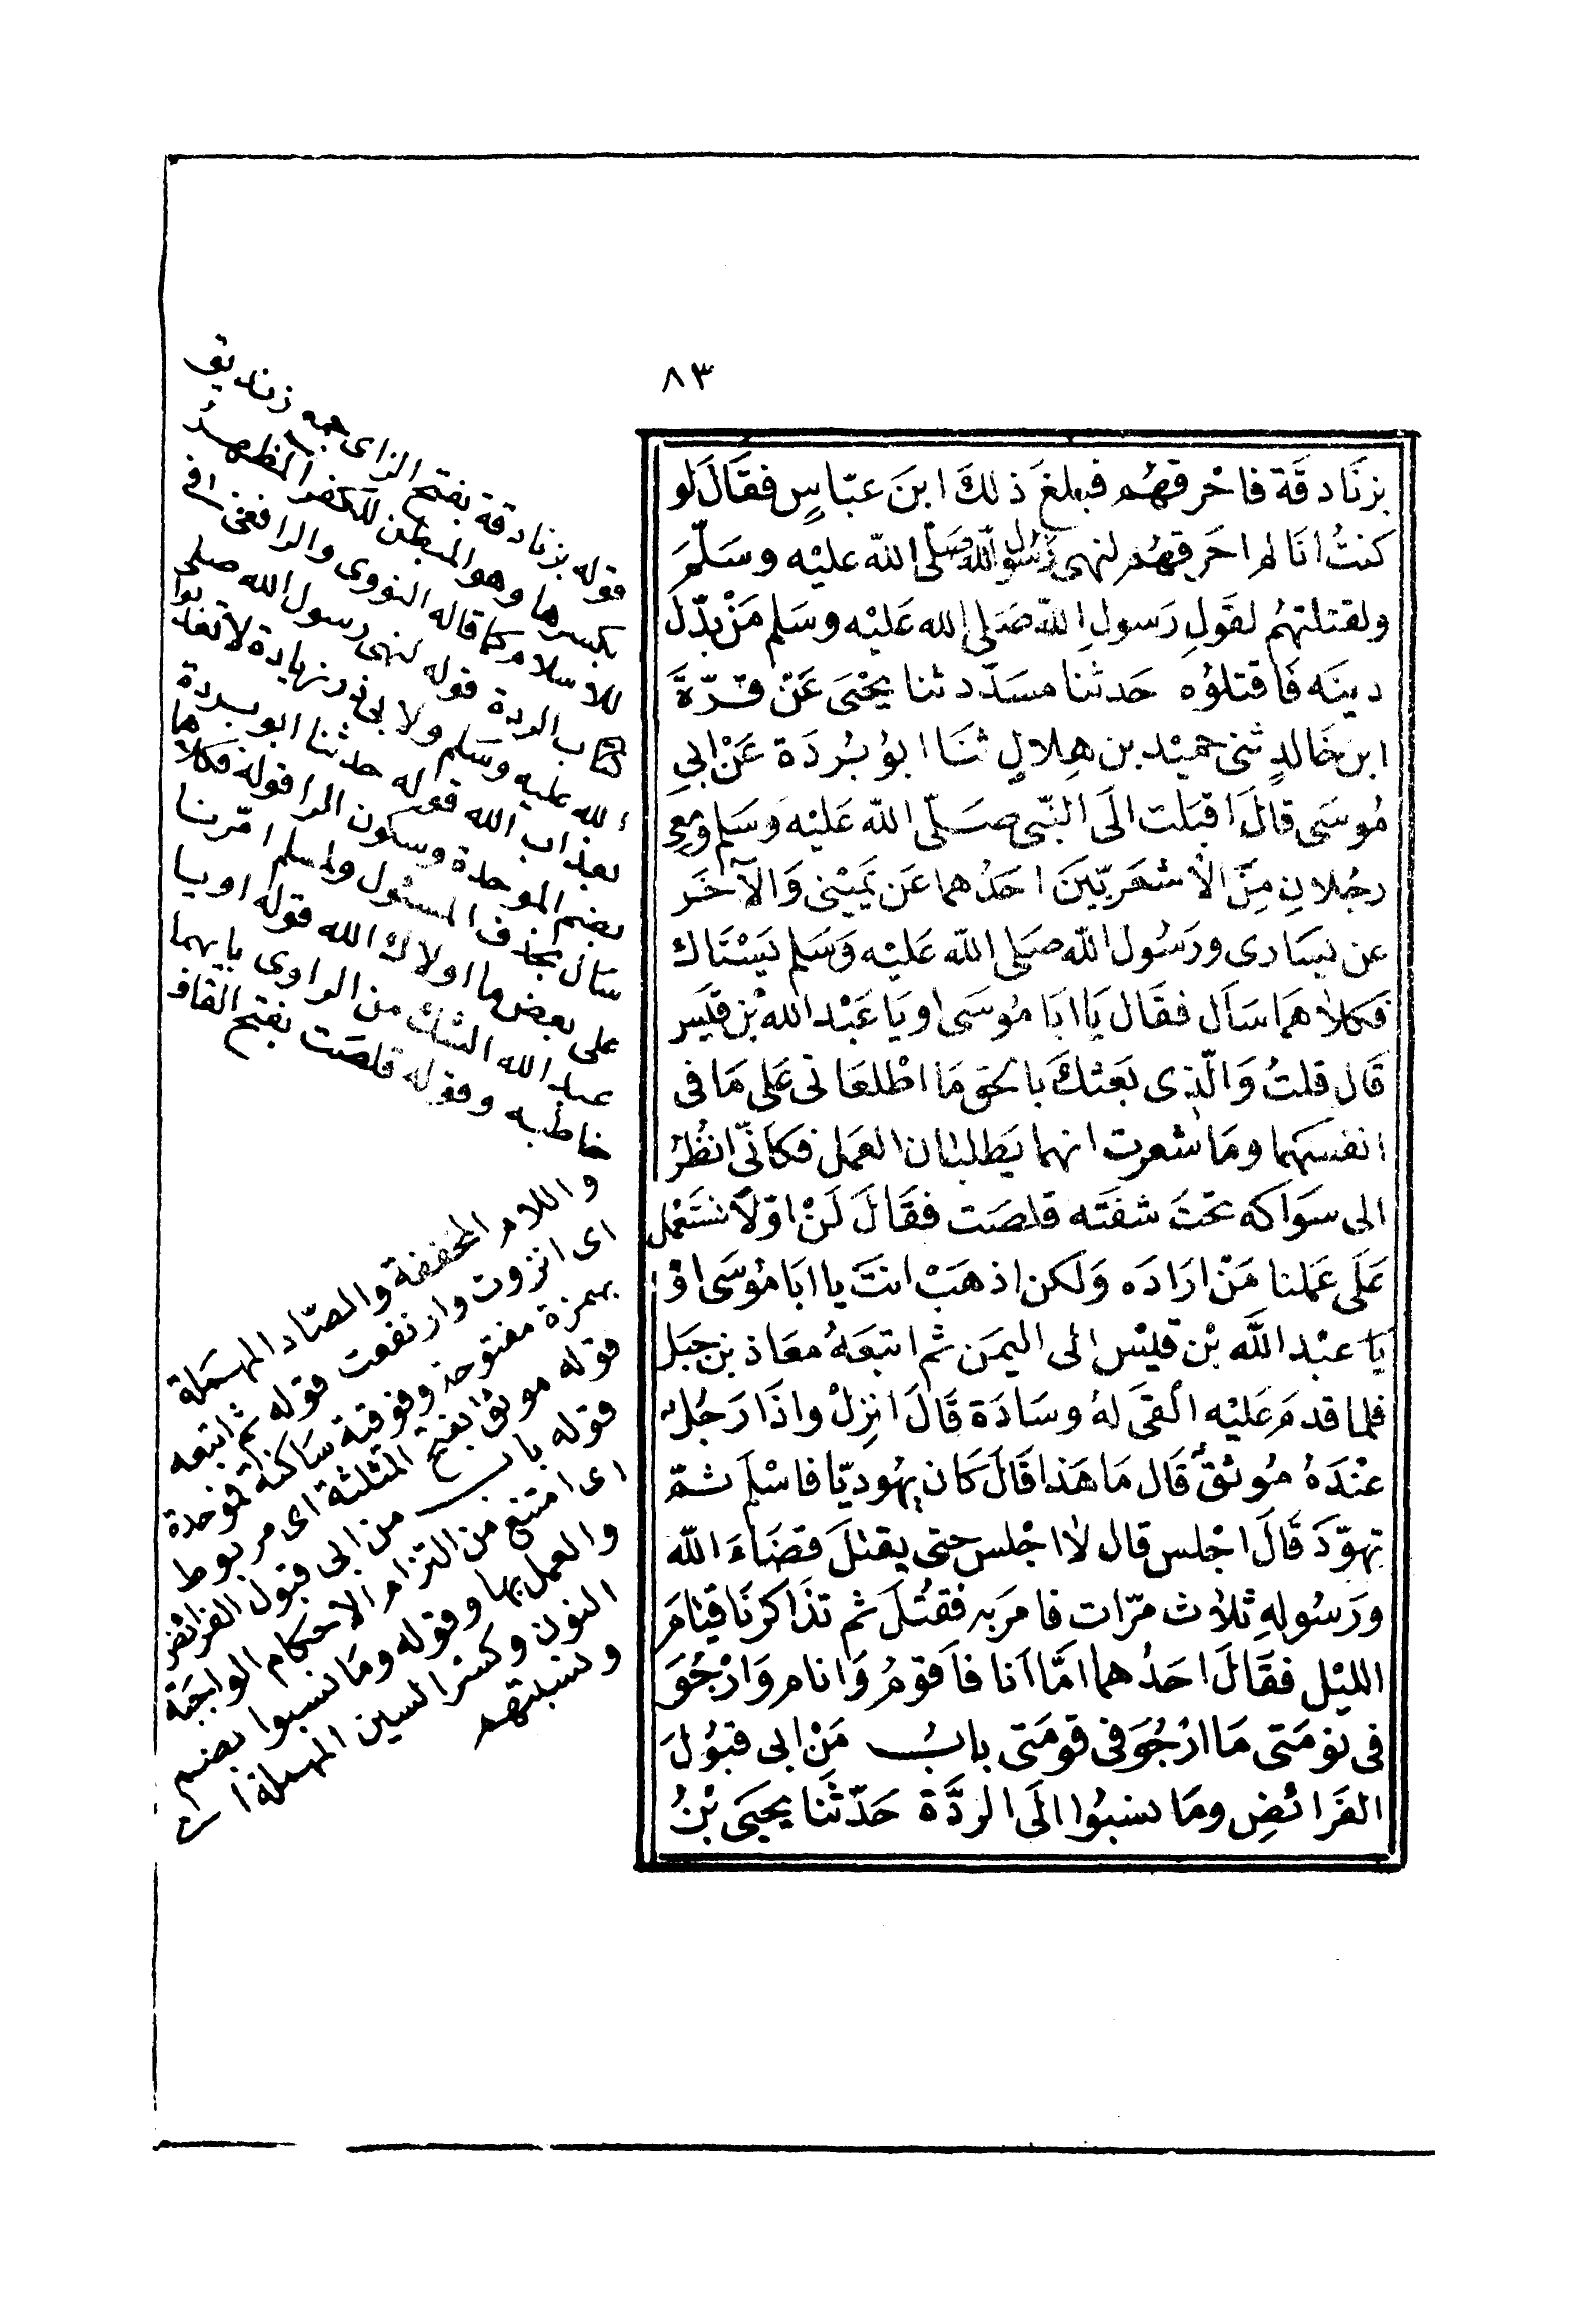 ٨٣
بزنَادقَة فاحْرقهُم فبلغَ ذلكَ ابنَ عبّاسٍ فقَالَ لو
كنتُ انَا لم احَرقهُم لنهى رَسُول الله صَلّى الله عليْه وسَلّمَ
ولقتلتهُم لقَولِ رَسولِ اللّه صَلى الله عَليْه وسَلم مَنْ بدّلَ
دينَه فَاقتلوُه حَدثنا مسَدّد ثنا يحْيىَ عَنْ قرّةَ
ابن خَالدٍ ثنى حميْد بن هِلالٍ ثنَا ابوُ بُردَة عَنْ ابِي
مُوسَى قالَ اقبَلت الَى النّبى صَلّى اللّه عَليْه وَسَلم وَمَعِى
رجُلانِ مِنَ الأشعَريّينَ احَدُهما عَن يَميْنى وَالآخَر
عن يسَارى ورَسُول اللّه صَلى اللّه عَليْه وَسَلم يَسْتَاك
فكلاهمَا سَاَل فقَال يَا ابَا مُوسَى او يَا عَبْد الله بْن قيَس
قَال قلتُ وَالّذِى بَعثكَ بالحَق مَا اطْلعَانى عَلى مَا فى
انفسهمَا ومَا شعرت انهما يَطلبَان العمَل فكاَنّى انظُرُ
الى سوَاكه تحتَ شفَتَه قلصَت فقَالَ لَنْ اوّلَا نسَتَعْمل
عَلَى عَملنا مَنْ ارَادَه وَلكن اذهَبْ انتَ يا ابَا مُوسَى اوْ
يَا عبْد اللَّه بْن قيْس الى اليمَن ثم اتبَعَهُ معَاذ بن جبَل
فلما قدمَ عَليْه القىَ لهُ وسَادَة قَالَ انزِلْ واذَا رَجُلٌ
عنْدَهُ مُوثقٌ قَال مَا هَذا قَالَ كَان يهُوديّا فاسْلم ثمّ
تهوّدَ قَالَ اجْلس قال لا اجْلس حتى يقتلَ قضَاءَ اللّه
ورَسُولهِ ثلاث مرّات فامَر به فقتُلَ ثم تذَاكرنَا قيَامَ
الليْل فقَالَ احَدُهما امَّا انا فاَقومُ وَانام وَارْجُوَ
فى نوْمَتى مَا ارْجُوَ فى قومَتى بابُ مَنْ ابى قبوُلَ
الفَرائضِ ومَا نسبُوا الَى الردَّة حَدّثَنا يحيَى بْنُ
قوله بزنادقة بفتح الزاى جمع زنديق
بكسرها وهو المبطن للكفر المظهر
للاسلام كما قاله النووى والرافعى فى
كتاب الردة قوله لنهى رسول الله صلى
الله عليه وسلم ولابى ذر زيادة لا تعذبوا
بعذاب الله قوله حدثنا ابو بردة
بضم الموحدة وسكون الرا قوله فكلاهما
سأل بحذف المسئول ولمسلم امّرنا
على بعض ما اولاك الله قوله او يا
عبد الله الشك من الراوى بايهما
خاطبه وقوله قلصَت بفتح القاف
واللام المخففة والصّاد المهمَلة
اى انزوت وارتفعت قوله ثم اتبعه
بهمزة مفتوحة وفوقية سَاكنة فموحدة
قوله موثق بفتح المثلثة اى مربوط
قوله باب من ابى قبول الفرائض
اى امتنع من التزام الاحكام الواجبَة
والعمل بها وقوله ومَا نسبوا بضم
النون وكسر السين المهملة اى
ونسبتهم